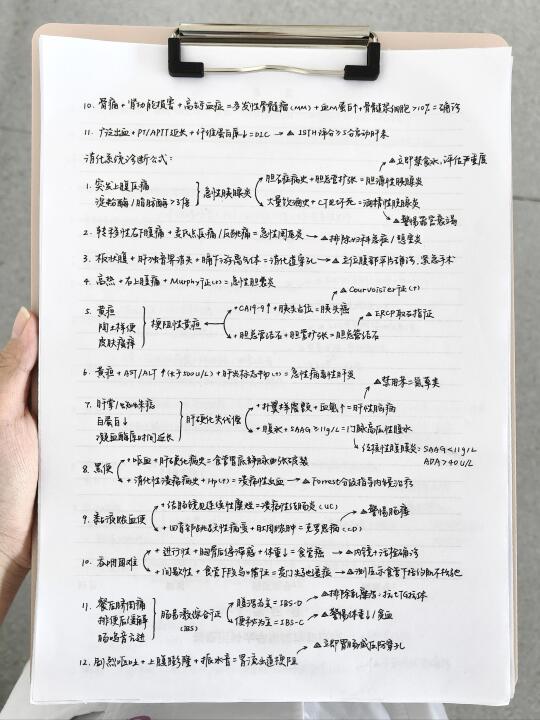 10. 骨痛 + 肾功能损害 + 高钙血症 = 多发性骨髓瘤(MM) + 血M蛋白↑ + 骨髓浆细胞>10% = 确诊
11. 广泛出血 + PT/APTT延长 + 纤维蛋白原↓ = DIC → △ ISTH评分≥5分启动肝素
消化系统诊断公式:
△立即禁食水,评估严重度
1. 突发上腹压痛 淀粉酶/脂肪酶>3倍 } 急性胰腺炎
胆石症病史 + 胆总管扩张 = 胆源性胰腺炎
大量饮酒史 + CT见坏死 = 酒精性胰腺炎
△警惕器官衰竭
2. 转移性右下腹痛 + 麦氏点压痛/反跳痛 = 急性阑尾炎 → △排除妇科急症/憩室炎
3. 板状腹 + 肝浊音界消失 + 膈下游离气体 = 消化道穿孔 → △立位腹部平片确诊,急诊手术
4. 高热 + 右上腹痛 + Murphy征(+) = 急性胆囊炎
△ Courvoisier征(+)
5. 黄疸 陶土样便 皮肤瘙痒 } 梗阻性黄疸
+ CA19-9↑ + 胰头占位 = 胰头癌
△ ERCP取石指征
+ 胆总管结石 + 胆管扩张 = 胆总管结石
6. 黄疸 + AST/ALT↑(大于500U/L) + 肝炎标志物(+) = 急性病毒性肝炎
△禁用苯二氮䓬类
7. 肝掌/蜘蛛痣 白蛋白↓ 凝血酶原时间延长 } 肝硬化失代偿
+ 扑翼样震颤 + 血氨↑ = 肝性脑病
+ 腹水 + SAAG≥11g/L = 门脉高压性腹水
结核性腹膜炎: SAAG<11g/L ADA>40U/L
8. 黑便
+ 呕血 + 肝硬化病史 = 食管胃底静脉曲张破裂
+ 消化性溃疡病史 + Hp(+) = 溃疡性出血 → △ Forrest分级指导内镜治疗
9. 黏液脓血便
+ 结肠镜见连续性糜烂 = 溃疡性结肠炎(UC)
△警惕肠癌
+ 回盲部跳跃性病变 + 肛周脓肿 = 克罗恩病(CD)
10. 吞咽困难
+ 进行性 + 胸骨后烧灼感 + 体重↓ = 食管癌 → △内镜+活检确诊
+ 间歇性 + 食管下段鸟嘴征 = 贲门失弛缓症 → △测压示食管下括约肌不松弛
11. 餐后脐周痛 排便后缓解 肠鸣音亢进 } 肠易激综合征(IBS)
腹泻为主 = IBS-D → △排除乳糜泻:抗tTG抗体
便秘为主 = IBS-C → △警惕体重↓/贫血
△立即胃肠减压防穿孔
12. 剧烈呕吐 + 上腹膨隆 + 振水音 = 胃流出道梗阻